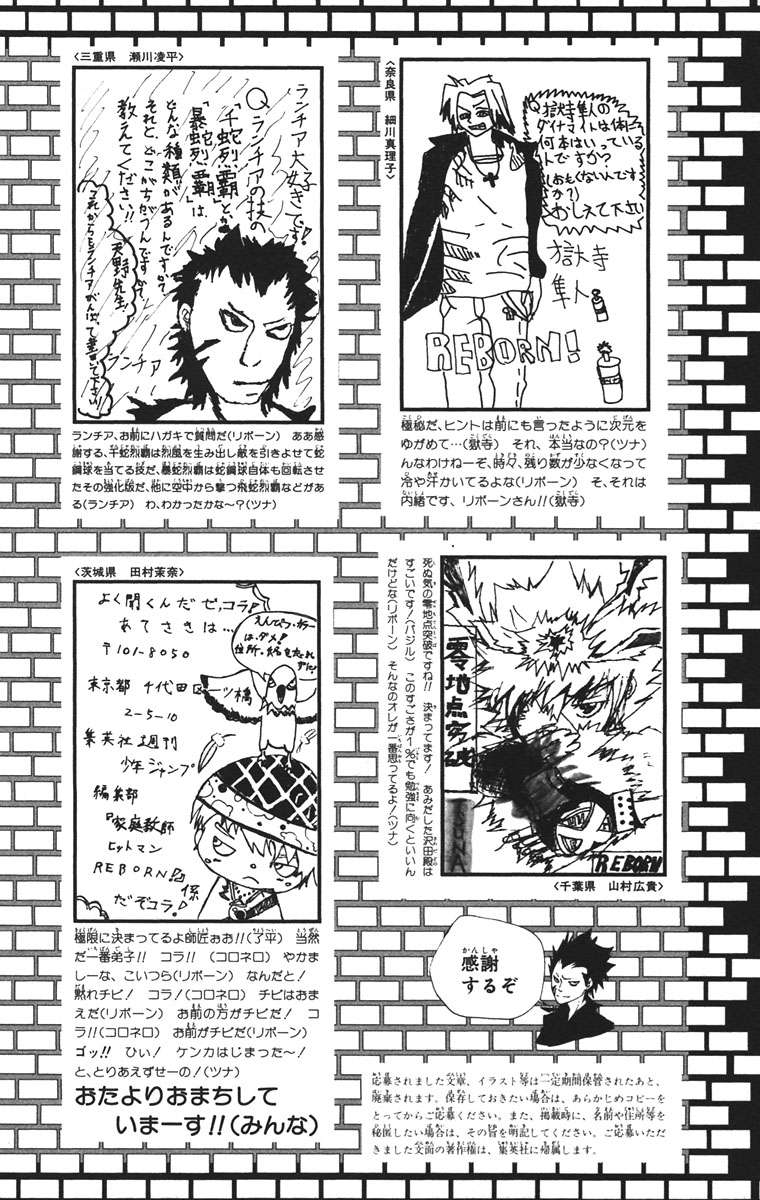 〈奈良県　細川真理子〉
Q獄寺隼人の
ダイナマイトは体に
何本はいっている
んですか？
(おもくないんです
か？)
おしえて下さい
獄寺
隼人
REBORN!
極秘だ、ヒントは前にも言ったように次元を
ゆがめて…(獄寺)　それ、本当なの？(ツナ)
んなわけねーぞ、時々、残り数が少なくなって
冷や汗かいてるよな(リボーン)　そ、それは
内緒です、リボーンさん!!(獄寺)
〈三重県　瀬川凌平〉
ランチア大好きです!
Qランチアの技の
「千蛇烈覇」とか
「暴蛇烈覇」は、
どんな種類があるんですか？
それと、どこがちがうんですか？
教えてください!!
天野先生、
これからもランチアがんばって書いて下さい!
ランチア
ランチア、お前にハガキで質問だ(リボーン)　ああ感
謝する、千蛇烈覇は烈風を生み出し敵を引きよせて蛇
鋼球を当てる技だ、暴蛇烈覇は蛇鋼球自体も回転させ
たその強化版だ、他に空中から撃つ飛蛇烈覇などがあ
る(ランチア)　わ、わかったかな〜？(ツナ)
死ぬ気の零地点突破ですね!!　決まってます！　あみだした沢田殿は
すごいです！(バジル)　このすごさが1％でも勉強に向くといいん
だけどな(リボーン)　そんなのオレが一番思ってるよ！(ツナ)
零地点突破
TSUNA
REBORN
〈千葉県　山村広貴〉
〈茨城県　田村茉奈〉
よく聞くんだゼ,コラ!
あてさきは…
〒101-8050
東京都 千代田区一ツ橋
2-5-10
集英社 週刊
少年ジャンプ
編集部
『家庭教師
ヒットマン
REBORN!』係
だぞコラ!
極限に決まってるよ師匠ぉお!!(了平)　当然
だ一番弟子!!　コラ!!　(コロネロ)　やかま
しーな、こいつら(リボーン)　なんだと！
黙れチビ！　コラ！(コロネロ)　チビはおま
えだ(リボーン)　お前の方がチビだ！　コ
ラ!!(コロネロ)　お前がチビだ(リボーン)
ゴッ!!　ひぃ！　ケンカはじまった〜！
と、とりあえずせーの！(ツナ)
おたよりおまちして
いまーす!!(みんな)
感謝
するぞ
応募されました文章、イラスト等は一定期間保管されたあと、
廃棄されます。保存しておきたい場合は、あらかじめコピーを
とってからご応募ください。また、掲載時に、名前や住所等を
秘匿したい場合は、その旨を明記してください。ご応募いただ
きました文面の著作権は、集英社に帰属します。